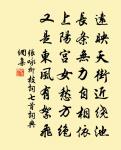 遠映天街近繞池
長條無力自相依
上陽宮女愁方絕
又是東風有絮飛
張咏柳枝詞七首詞典
網集